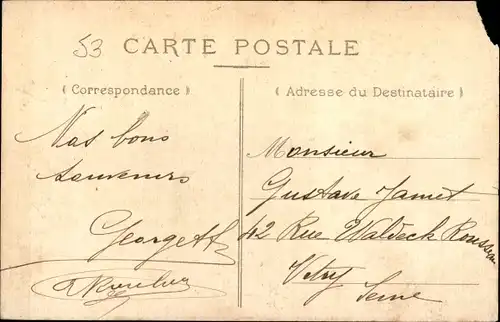 53
CARTE POSTALE
( Correspondance )
( Adresse du Destinataire )
Nos bons
souvenirs
Georgette
Monsieur
Gustave Jamet
42 Rue Waldeck Rousseau
Vitry
Seine